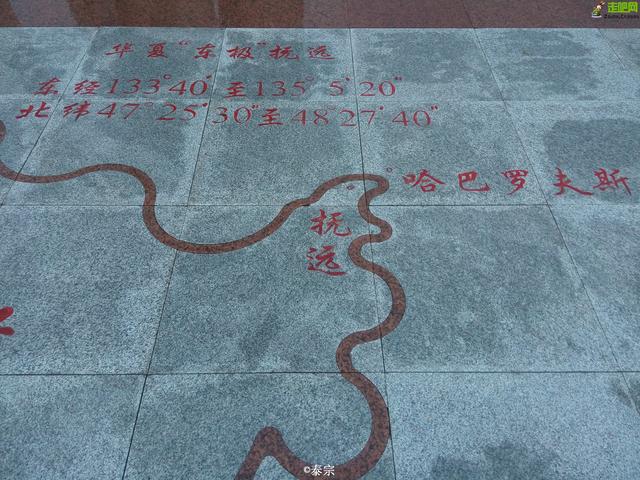 走吧网
华夏“东极”抚远
东经133°40′至135°5′20″
北纬47°25′30″至48°27′40″
哈巴罗夫斯
抚
远
©泰宗